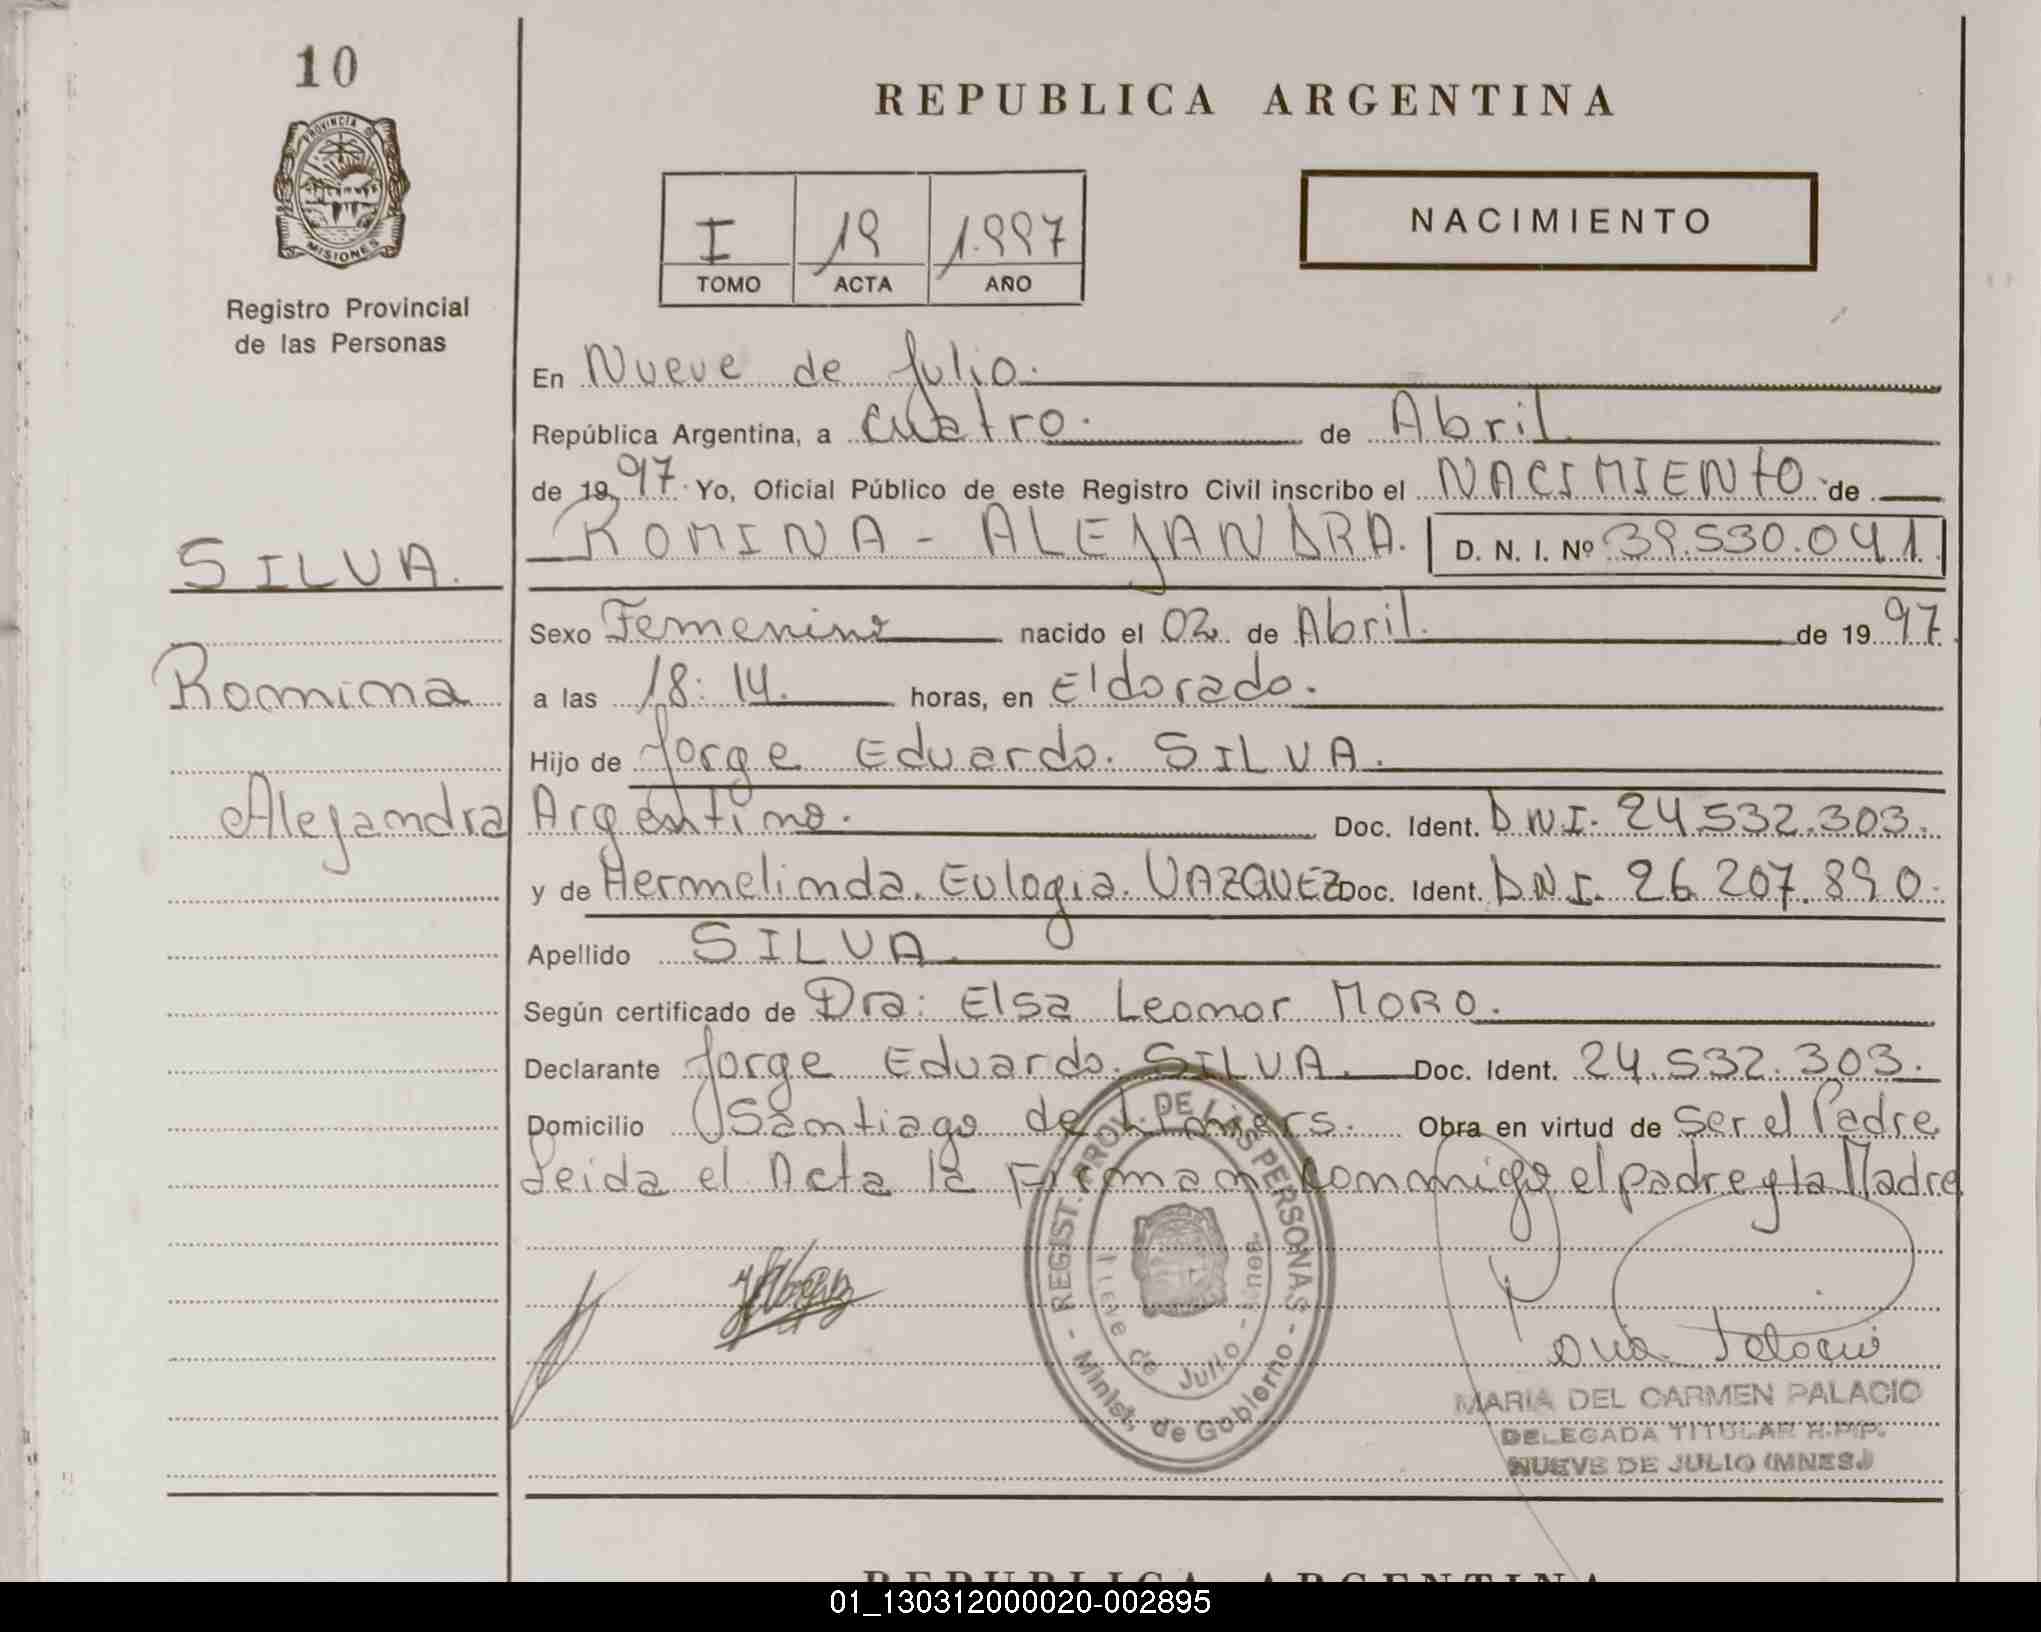 10
PROVINCIA DE
MISIONES
Registro Provincial
de las Personas
REPUBLICA ARGENTINA
I 19 1.997
TOMO ACTA AÑO
NACIMIENTO
En Nueve de Julio.
República Argentina, a cuatro. de Abril
de 1997. Yo, Oficial Público de este Registro Civil inscribo el NACIMIENTO de
ROMINA - ALEJANDRA. D. N. I. Nº 39.530.041.
SILVA.
Sexo Femenino nacido el 02 de Abril. de 1997.
Romina
a las 18:14. horas, en Eldorado.
Hijo de Jorge Eduardo. SILVA.
Alejandra
Argentino. Doc. Ident. DNI. 24.532.303.
y de Hermelinda. Eulogia. VAZQUEZ Doc. Ident. DNI. 26.207.890.
Apellido SILVA.
Según certificado de Dra: Elsa Leonor MORO.
Declarante Jorge Eduardo. SILVA. Doc. Ident. 24.532.303.
Domicilio Santiago de Liniers. Obra en virtud de Ser el Padre
Leida el Acta la Firman conmigo el padre y la Madre
- REGIST. PROV. DE LAS PERSONAS -
Minist. de Gobierno
Nueve de Julio - Mnes.
MARIA DEL CARMEN PALACIO
DELEGADA TITULAR R.P.P.
NUEVE DE JULIO (MNES.)
REPUBLICA ARGENTINA
01_130312000020-002895